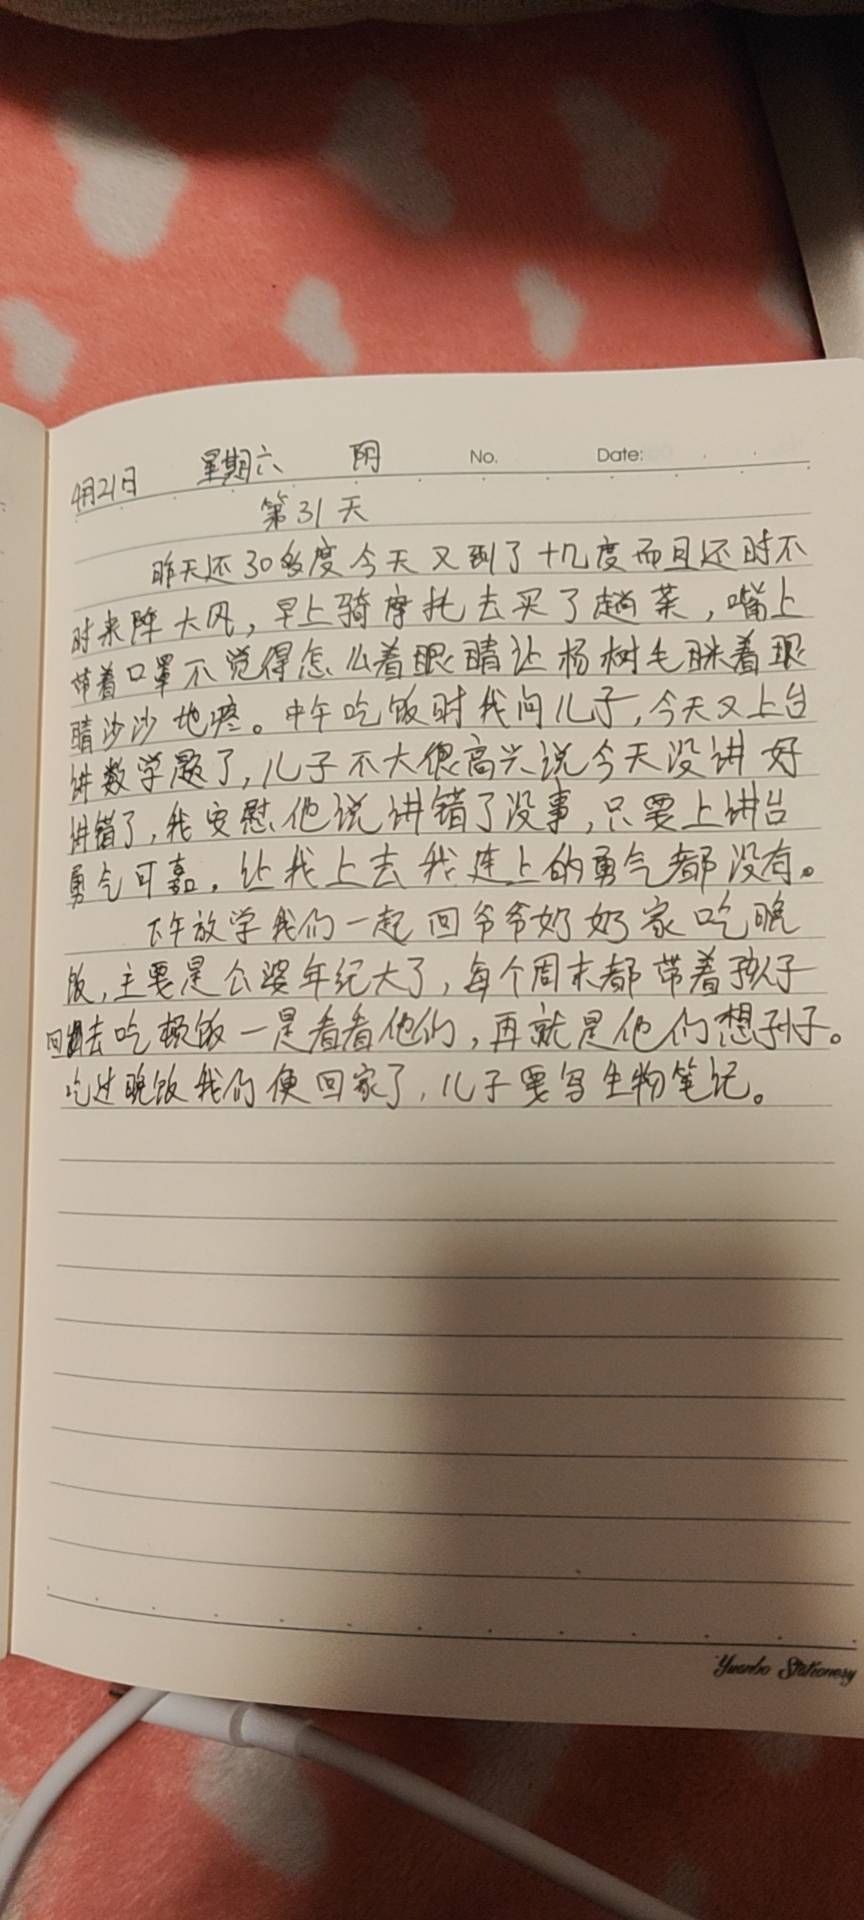 4月21日 星期六 阴 No. Date:
第31天
昨天还30多度今天又到了十几度而且还时不
时来阵大风，早上骑摩托去买了趟菜，嘴上
带着口罩不觉得怎么着眼睛让杨树毛眯着眼
睛沙沙地疼。中午吃饭时我问儿子，今天又上台
讲数学题了，儿子不大很高兴说今天没讲好
讲错了，我安慰他说讲错了没事，只要上讲台
勇气可嘉，让我上去我连上的勇气都没有。
下午放学我们一起回爷爷奶奶家吃晚
饭，主要是公婆年纪大了，每个周末都带着孩子
回去吃顿饭一是看看他们，再就是他们想孙子。
吃过晚饭我们便回家了，儿子要写生物笔记。
Yuanbo Stationery